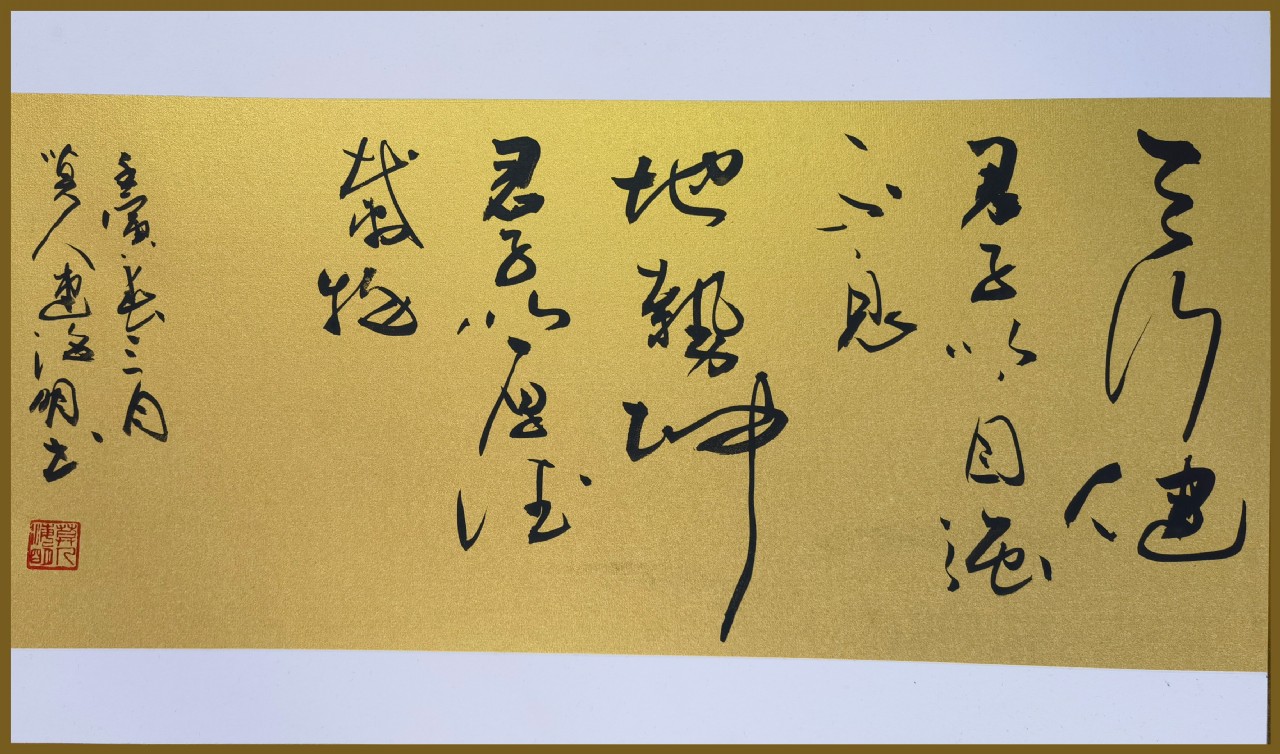 天行健
君子以自强
不息
地勢坤
君子以厚德
載物
壬寅春三月
人海明书